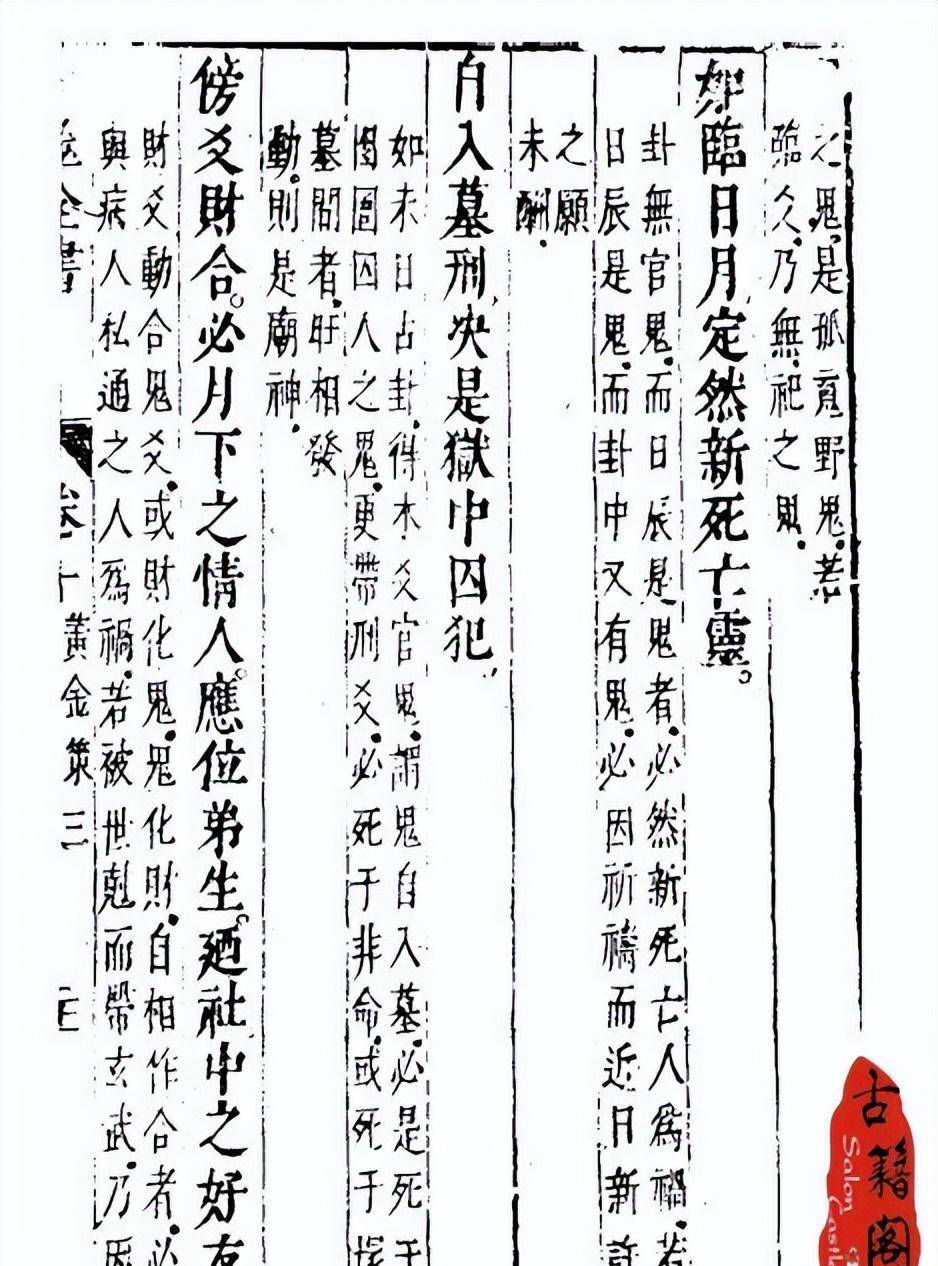 之鬼是孤寡野鬼若
臨久乃無祀之鬼
如臨日月定然新死亡靈
卦無官鬼而日辰是鬼者必然新死亡人為禍若
日辰是鬼而卦中又有鬼必因祈禱而近日新許
之願
未酬
自入墓刑決是獄中囚犯
如未日占卦得木爻官鬼謂鬼自入墓必是死于
囹圄囚人之鬼更帶刑爻必死于非命或死于
墓間者旺相發
動則是廟神
傍爻財合必月下之情人應位弟生廼社中之好友
財爻動合鬼爻或財化鬼鬼化財自相作合者必
與病人私通之人為禍若被世剋而帶玄武乃因
全書
卷十
黃金策三
古籍阁
Salon